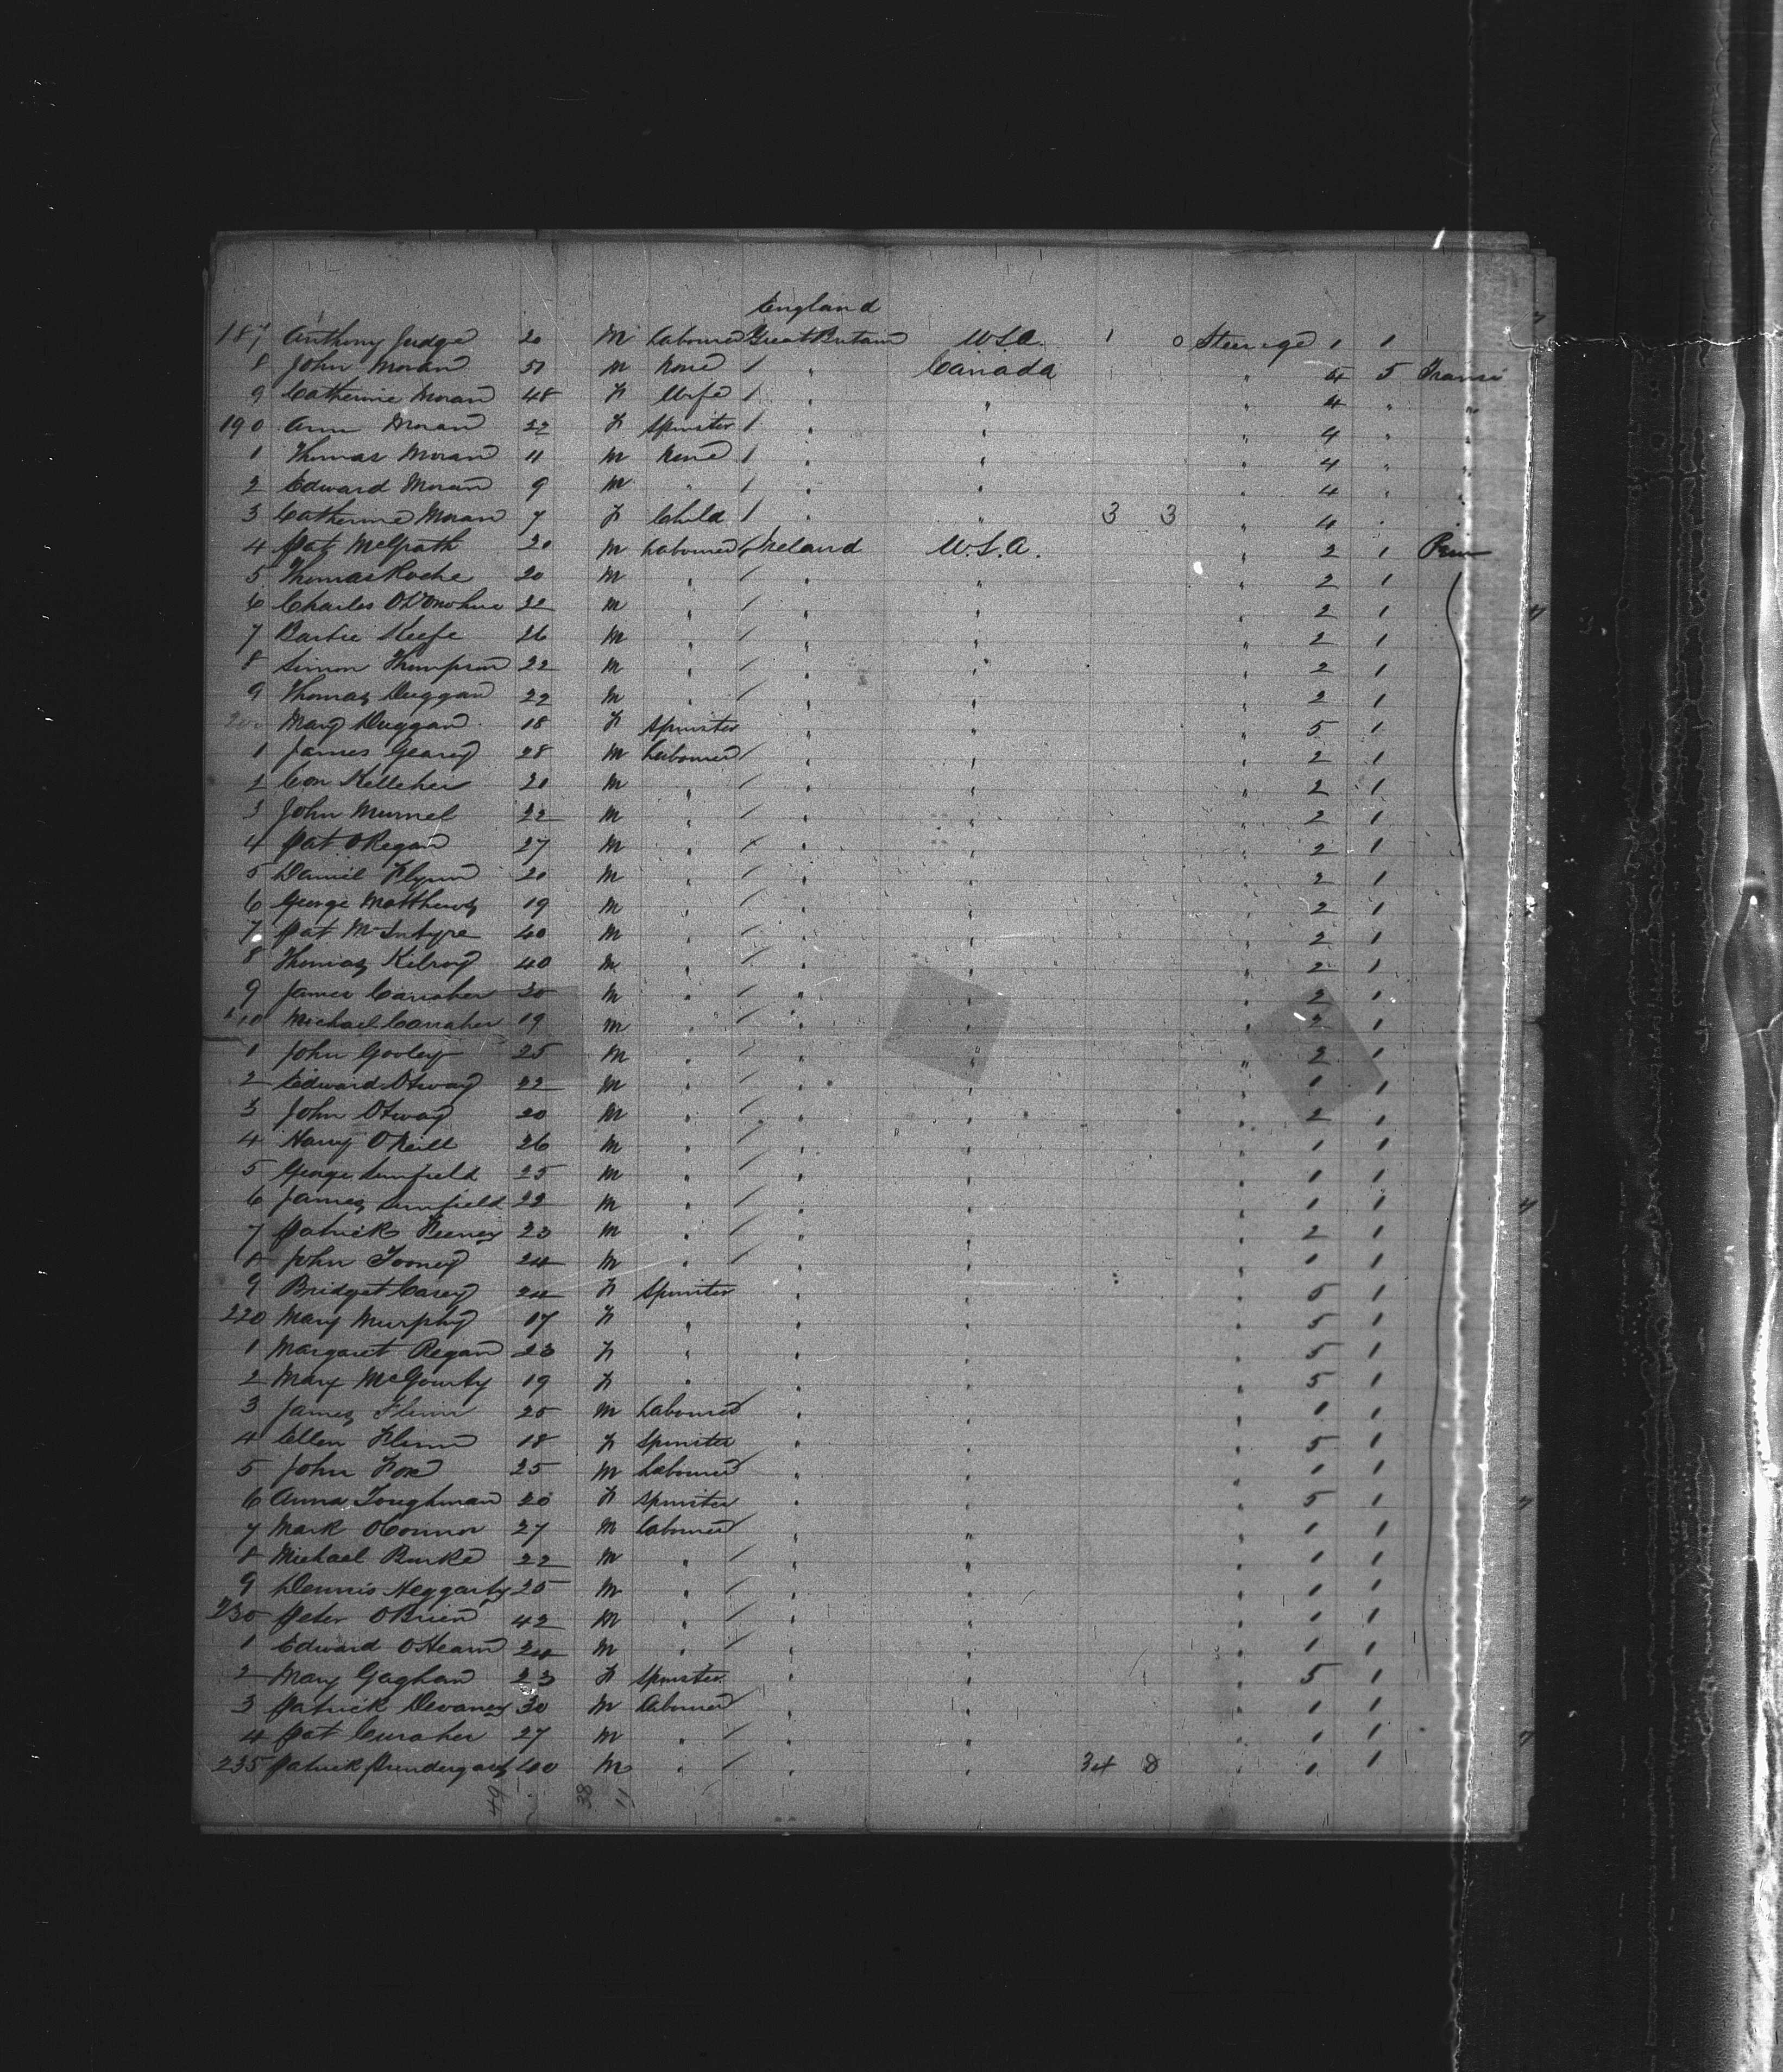 England
187 Anthony Judge 20 M Labourer Great Britain U.S.A. 1 0 Steerage 1 1
8 John Moran 51 M None / " Canada " 4 5 Transi
9 Catherine Moran 48 F Wife / " " " 4 " "
190 Ann Moran 22 F Spinster / " " " 4 " "
1 Thomas Moran 11 M None / " " " 4 " "
2 Edward Moran 9 M " / " " " 4 " "
3 Catherine Moran 7 F Child / " " 3 3 " 4 " "
4 Pat McGrath 20 M Labourer / Ireland U.S.A. " 2 1
5 Thomas Roche 20 M " / " " " 2 1
6 Charles O'Donohue 22 M " / " " " 2 1
7 Bartie Keefe 26 M " / " " " 2 1
8 Simon Thompson 22 M " / " " " 2 1
9 Thomas Duggan 22 M " / " " " 2 1
200 Mary Duggan 18 F Spinster " " " 5 1
1 James Geary 28 M Labourer / " " " 2 1
2 Con Kelleher 20 M " / " " " 2 1
3 John 22 M " / " " " 2 1
4 Pat O'Regan 27 M " / " " " 2 1
5 Daniel Flynn 20 M " / " " " 2 1
6 George Matthews 19 M " / " " " 2 1
7 Pat McIntyre 40 M " / " " " 2 1
8 Thomas Kilroy 40 M " / " " " 2 1
9 James Carraher 20 M " / " " " 2 1
210 Michael Carraher 19 M " / " " " 2 1
1 John Gooley 25 M " / " " " 2 1
2 Edward Otway 22 M " / " " " 1 1
3 John Otway 20 M " / " " " 2 1
4 Harry O'Neill 26 M " / " " " 1 1
5 George 25 M " / " " " 1 1
6 James 22 M " / " " " 1 1
7 Patrick Feeney 23 M " / " " " 2 1
8 John Toomey 24 M " / " " " 1 1
9 Bridget Carey 24 F Spinster " " " 5 1
220 Mary Murphy 17 F " " " " 5 1
1 Margaret Regan 23 F " " " " 5 1
2 Mary McGourty 19 F " " " " 5 1
3 James Flinn 25 M Labourer " " " 1 1
4 Ellen Flinn 18 F Spinster " " " 5 1
5 John Fox 25 M Labourer " " " 1 1
6 Anna Toughman 20 F Spinster " " " 5 1
7 Mark O'Connor 27 M Labourer " " " 1 1
8 Michael Burke 22 M " / " " " 1 1
9 Dennis Heggarty 25 M " / " " " 1 1
230 Peter O'Brien 42 M " / " " " 1 1
1 Edward O'Hearn 24 M " / " " " 1 1
2 Mary Gaghan 23 F Spinster " " " 5 1
3 Patrick Devaney 30 M Labourer " " " 1 1
4 Pat Curaher 27 M " / " " " 1 1
235 Patrick Prendergast 40 M " / " " 34 8 " 1 1
49 38 11